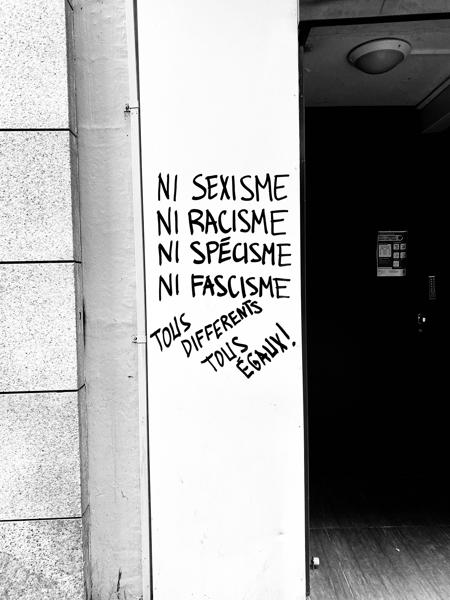 NI SEXISME
NI RACISME
NI SPÉCISME
NI FASCISME
TOUS
DIFFERENTS
TOUS
ÉGAUX!